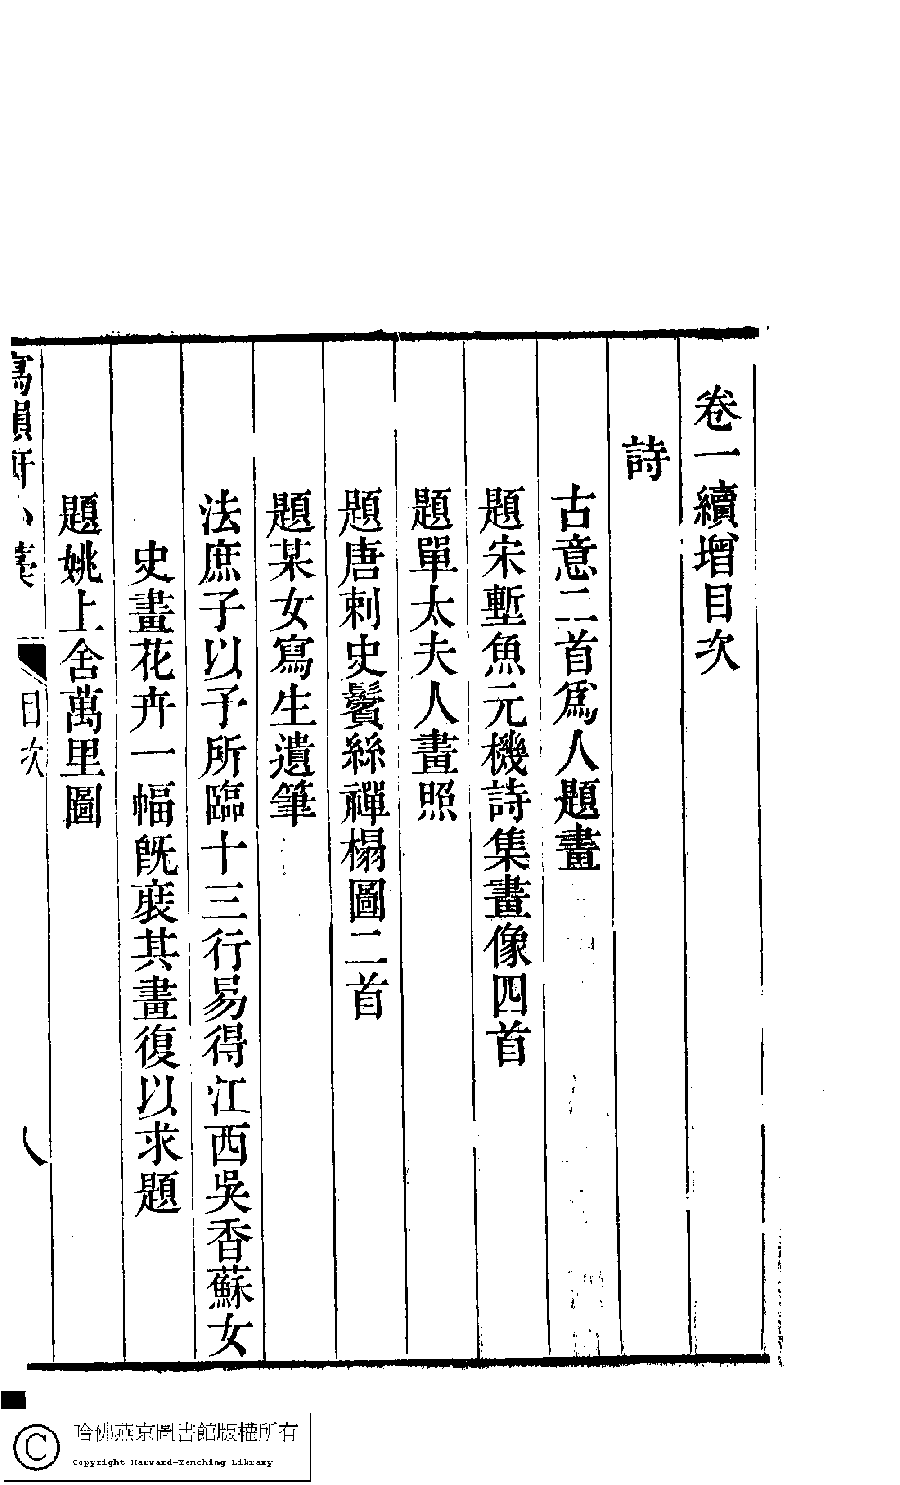 卷一續增目次
詩
古意二首爲人題畫
題宋塹魚元機詩集畫像四首
題單太夫人畫照
題唐刺史鬢絲禪榻圖二首
題某女寫生遺筆
法庶子以予所臨十三行易得江西吳香蘇女
史畫花卉一幅旣裝其畫復以求題
題姚上舍萬里圖
寫韻軒小藁
目次
八
哈佛燕京圖書館版權所有
Copyright Harvard-Yenching Library